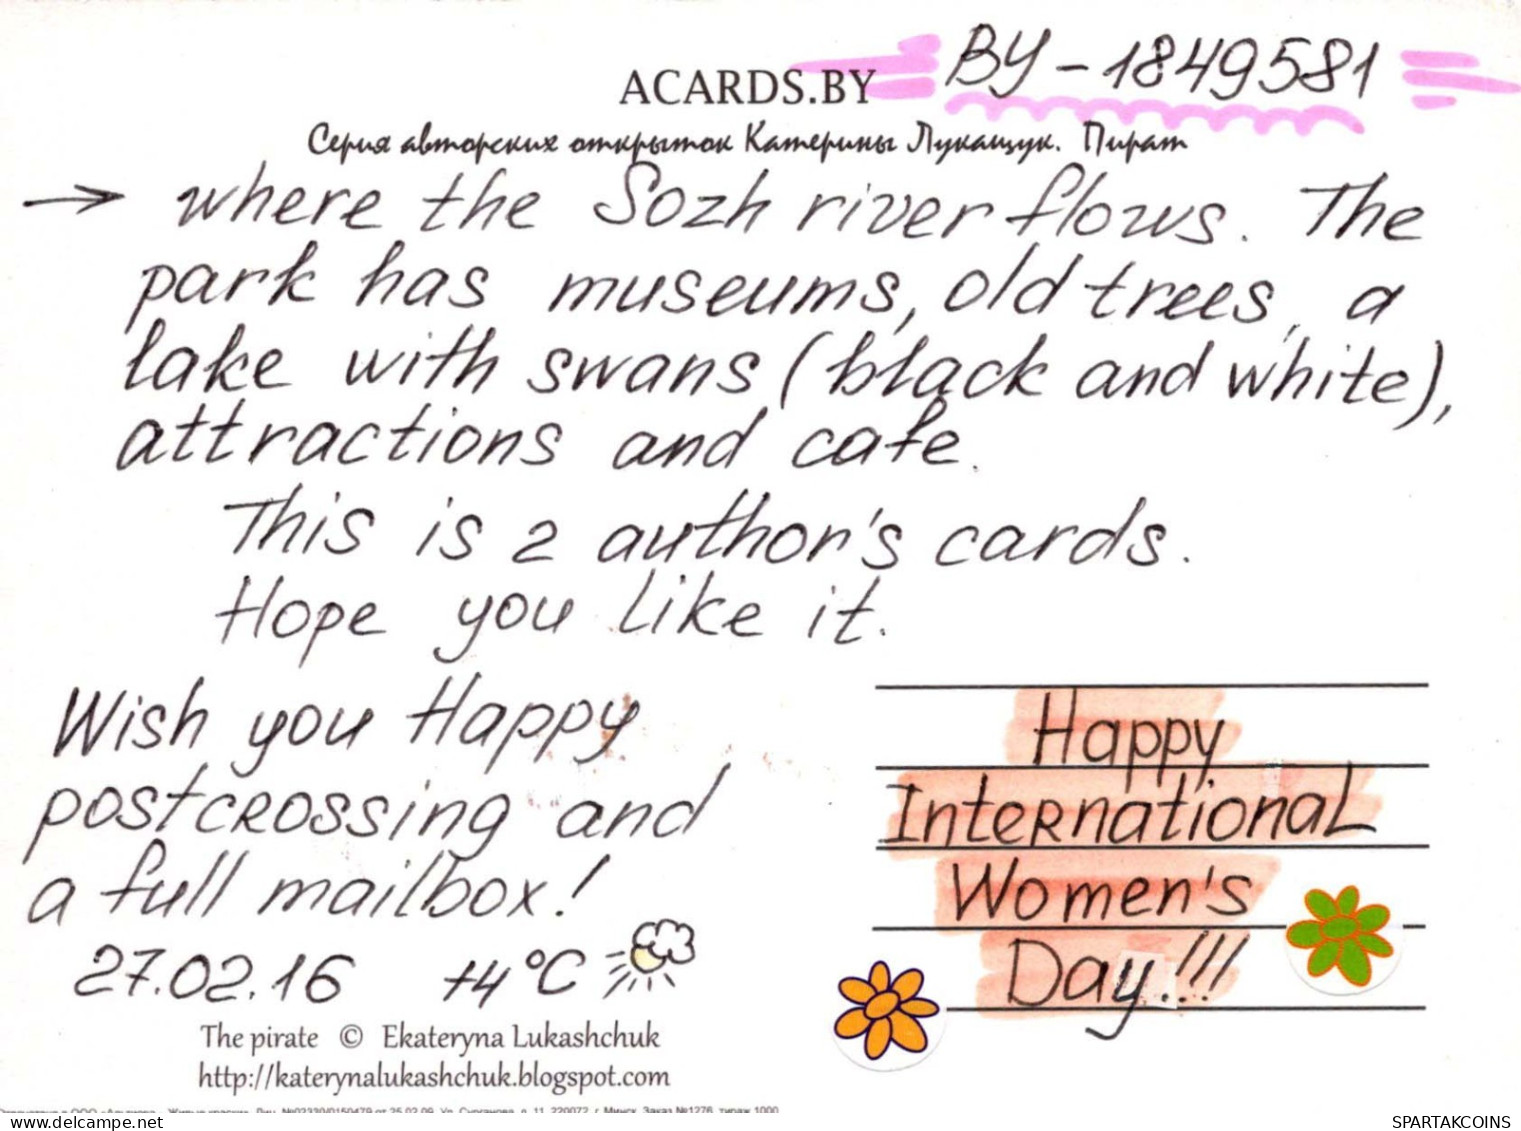 BY-1849581
ACARDS.BY
Серия авторских открыток Катерины Лукащук. Пират
→ where the Sozh river flows. The
park has museums, old trees, a
lake with swans (black and white),
attractions and cafe.
This is 2 author's cards.
Hope you like it.
Wish you Happy
postcrossing and
a full mailbox!
27.02.16 +4°C
Happy
International
Women's
Day!!!
The pirate © Ekateryna Lukashchuk
http://katerynalukashchuk.blogspot.com
№02330/0150479 от 25.02.09. Ул. Сурганова, д. 11, 220072, г. Минск. Заказ №1276, тираж 1000
delcampe.net
SPARTAKCOINS